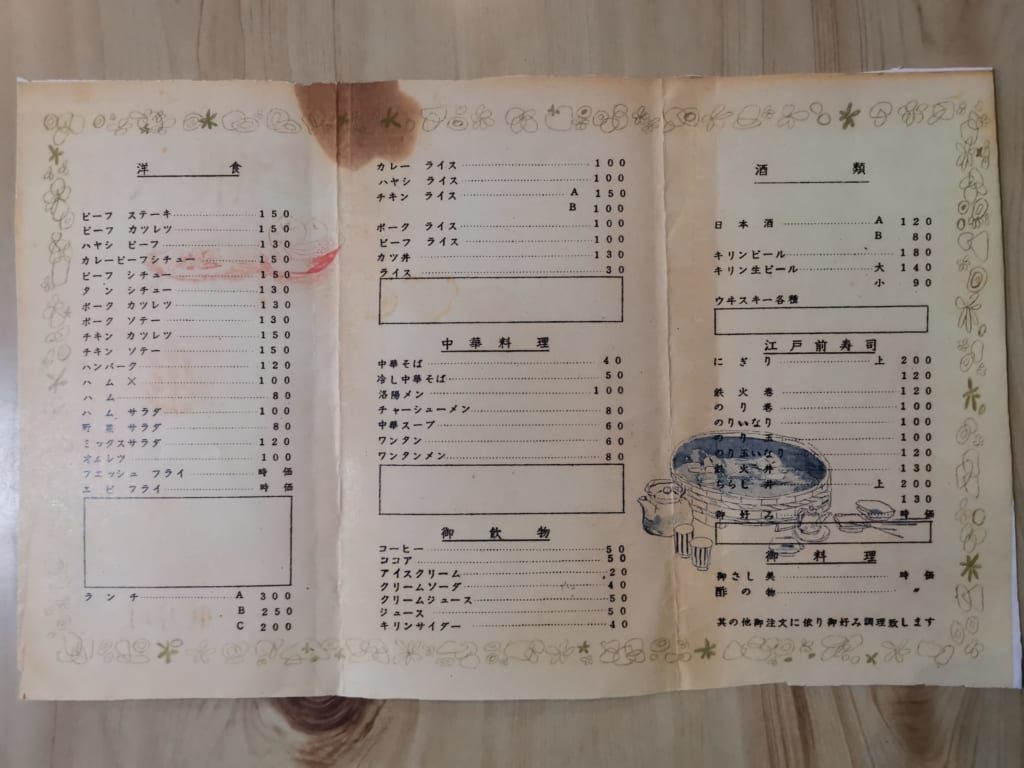 洋食
ビーフ ステーキ 150
ビーフ カツレツ 150
ハヤシ ビーフ 130
カレービーフシチュー 150
ビーフ シチュー 150
タン シチュー 130
ポーク カツレツ 130
ポーク ソテー 130
チキン カツレツ 150
チキン ソテー 150
ハンバーク 120
ハム × 100
ハム 80
ハム サラダ 100
野菜 サラダ 80
ミックスサラダ 120
オムレツ 100
フエッシュ フライ 時価
エビ フライ 時価
ランチ A 300
B 250
C 200
カレー ライス 100
ハヤシ ライス 100
チキン ライス A 150
B 100
ポーク ライス 100
ビーフ ライス 100
カツ丼 130
ライス 30
中華料理
中華そば 40
冷し中華そば 50
洛陽メン 100
チャーシューメン 80
中華スープ 60
ワンタン 60
ワンタンメン 80
御飲物
コーヒー 50
ココア 50
アイスクリーム 20
クリームソーダ 40
クリームジュース 50
ジュース 50
キリンサイダー 40
酒類
日本酒 A 120
B 80
キリンビール 180
キリン生ビール 大 140
小 90
ウヰスキー各種
江戸前寿司
にぎり 上 200
120
鉄火巻 120
のり巻 100
のりいなり 100
のり玉 100
のり玉いなり 120
鉄火丼 130
ちらし丼 上 200
130
御好み 時価
御料理
御さし美 時価
酢の物 〃
其の他御注文に依り御好み調理致します